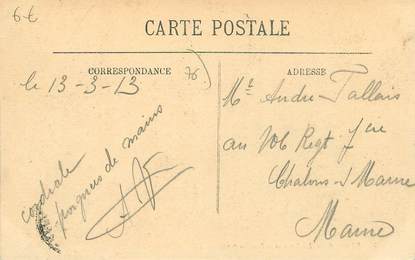 6€
CARTE POSTALE
CORRESPONDANCE
ADRESSE
76
le 13-3-13
cordiale
poignées de mains
Mr André Tallois
au 106 Regt
Chalons s/ Marne
Marne